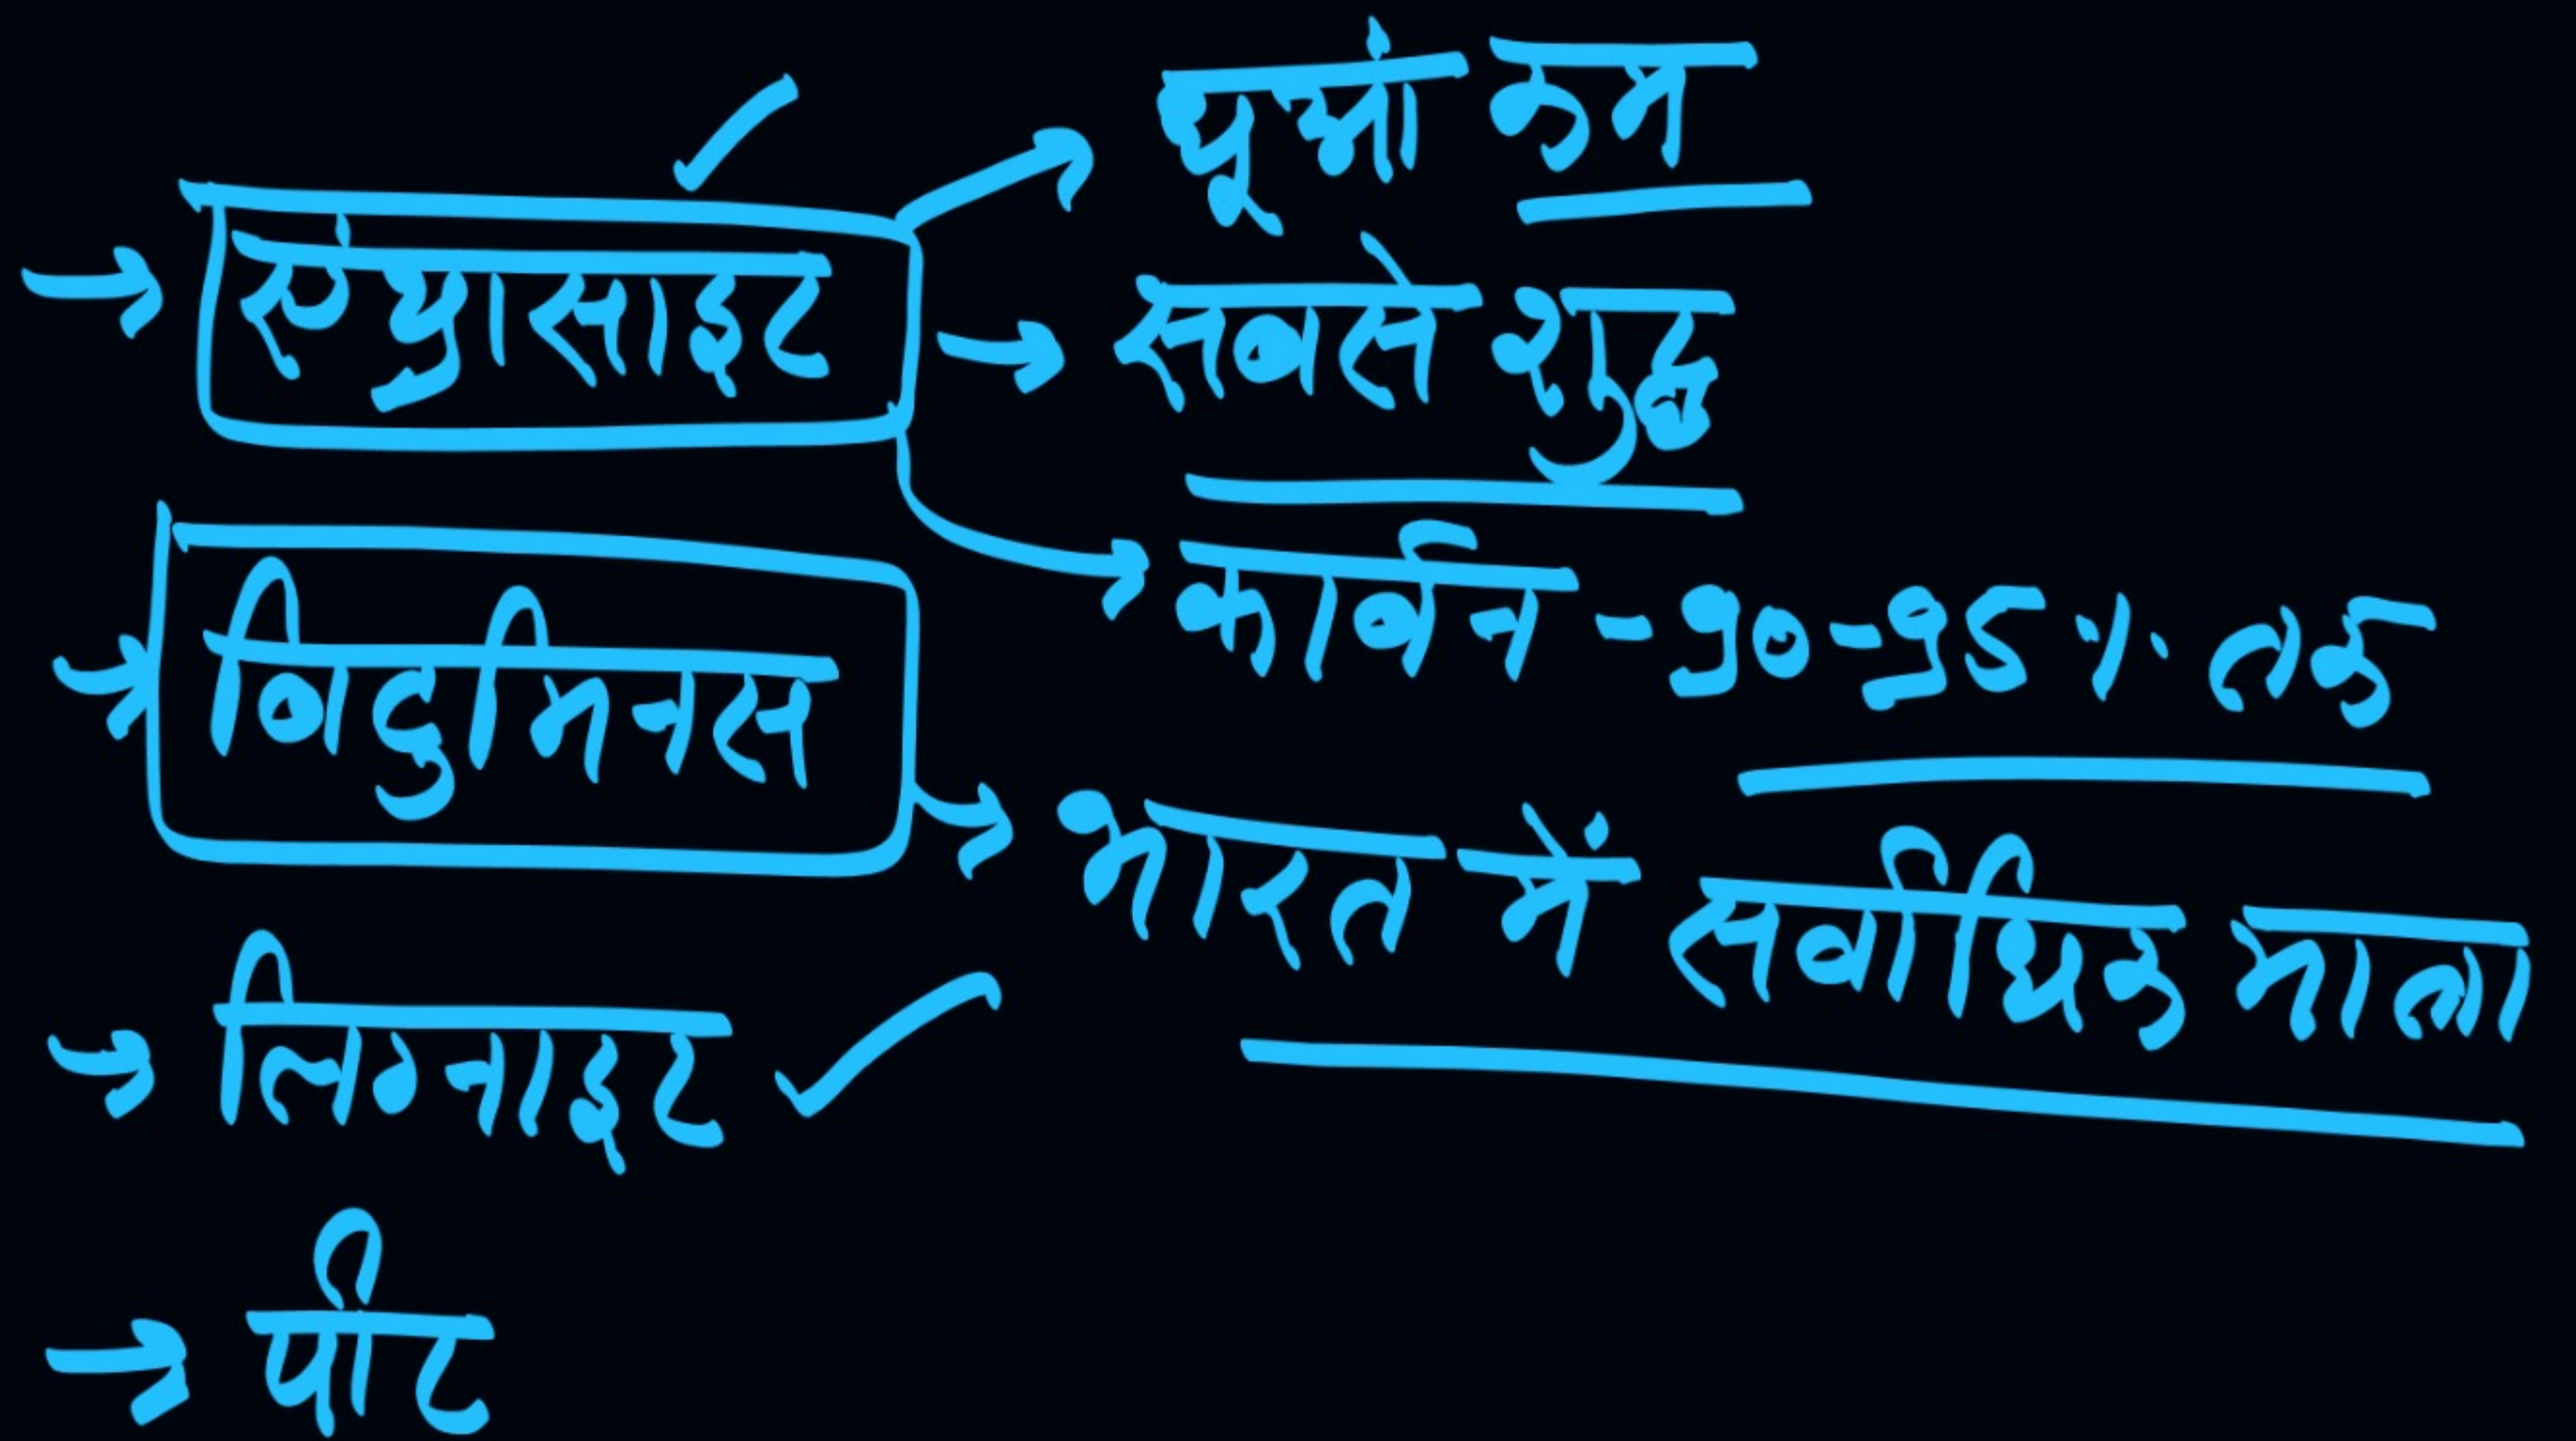 एंथ्रासाइट
धूआं कम
सबसे शुद्ध
कार्बन - 90-95% तक
बिटुमिनस
भारत में सर्वाधिक मात्रा
लिग्नाइट
पीट